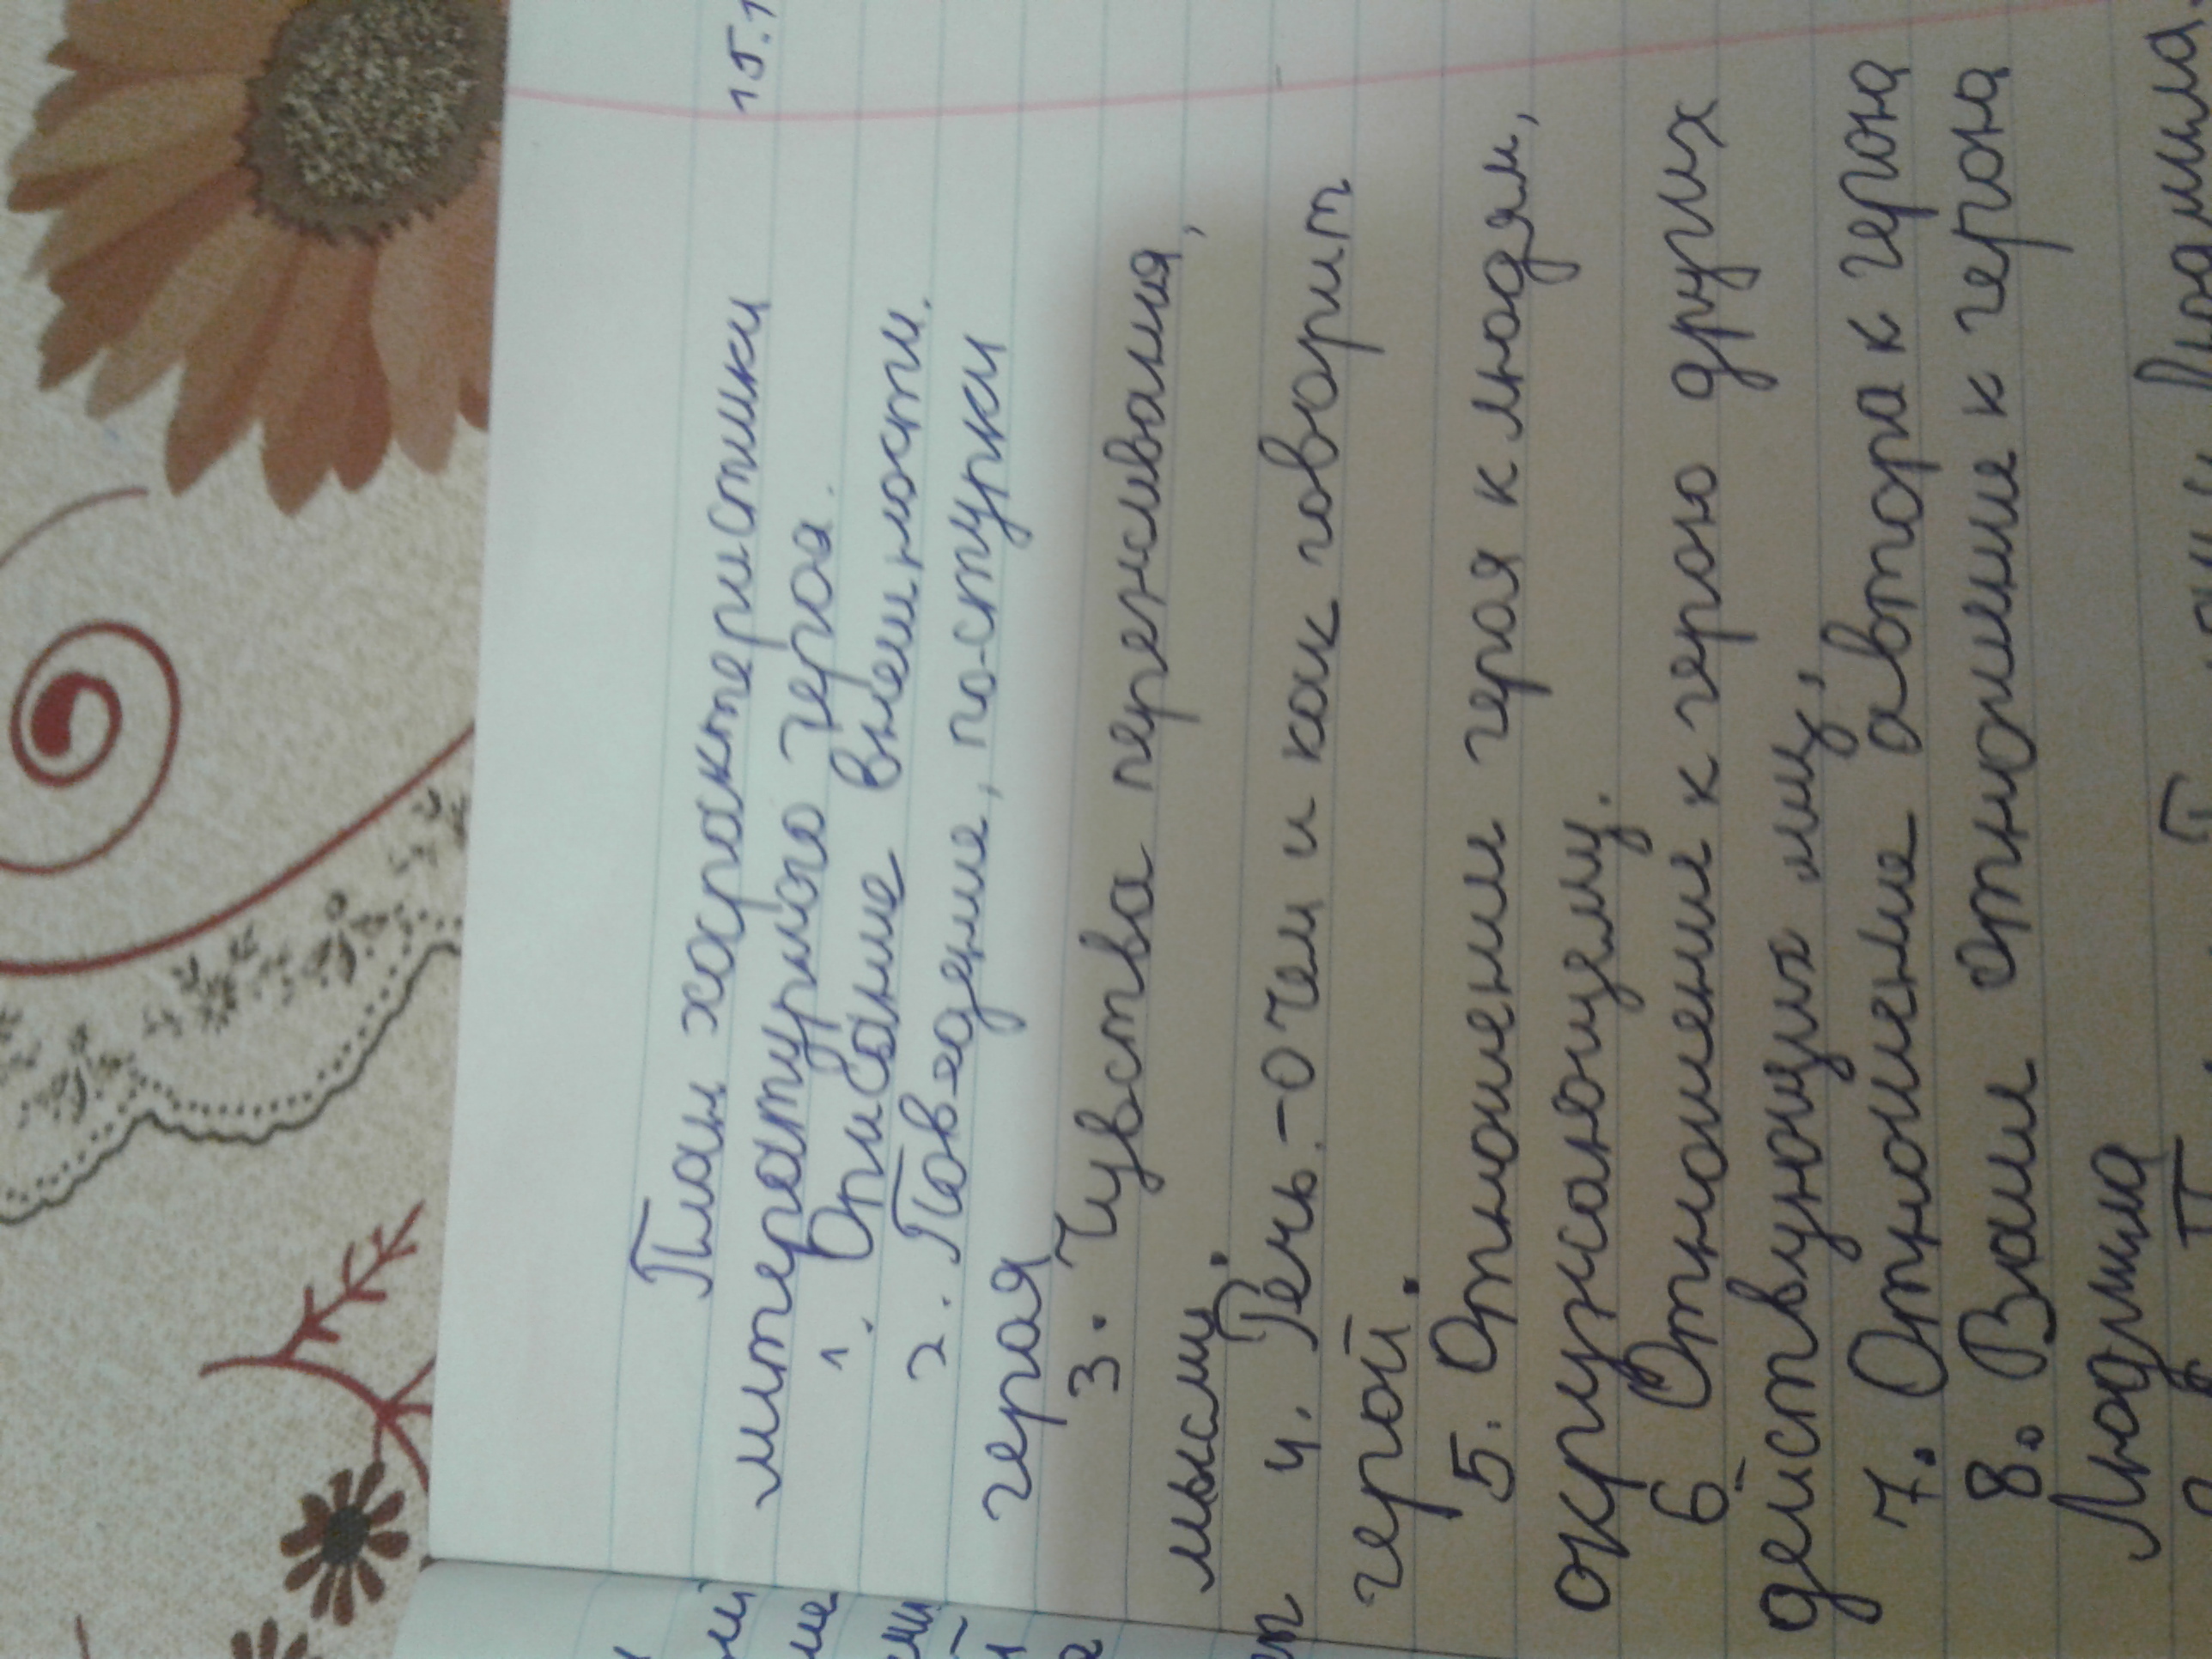 15.1
План характеристики
литературного героя.
1. Описание внешности.
2. Поведение, поступки
героя
3. Чувства переживания,
мысли.
4. Речь. - О чем и как говорит
герой.
5. Отношение героя к людям,
окружающему.
6 Отношение к герою других
действующих лиц,
7. Отношение автора к герою
8. Ваше отношение к герою
Людмила
Людмила.